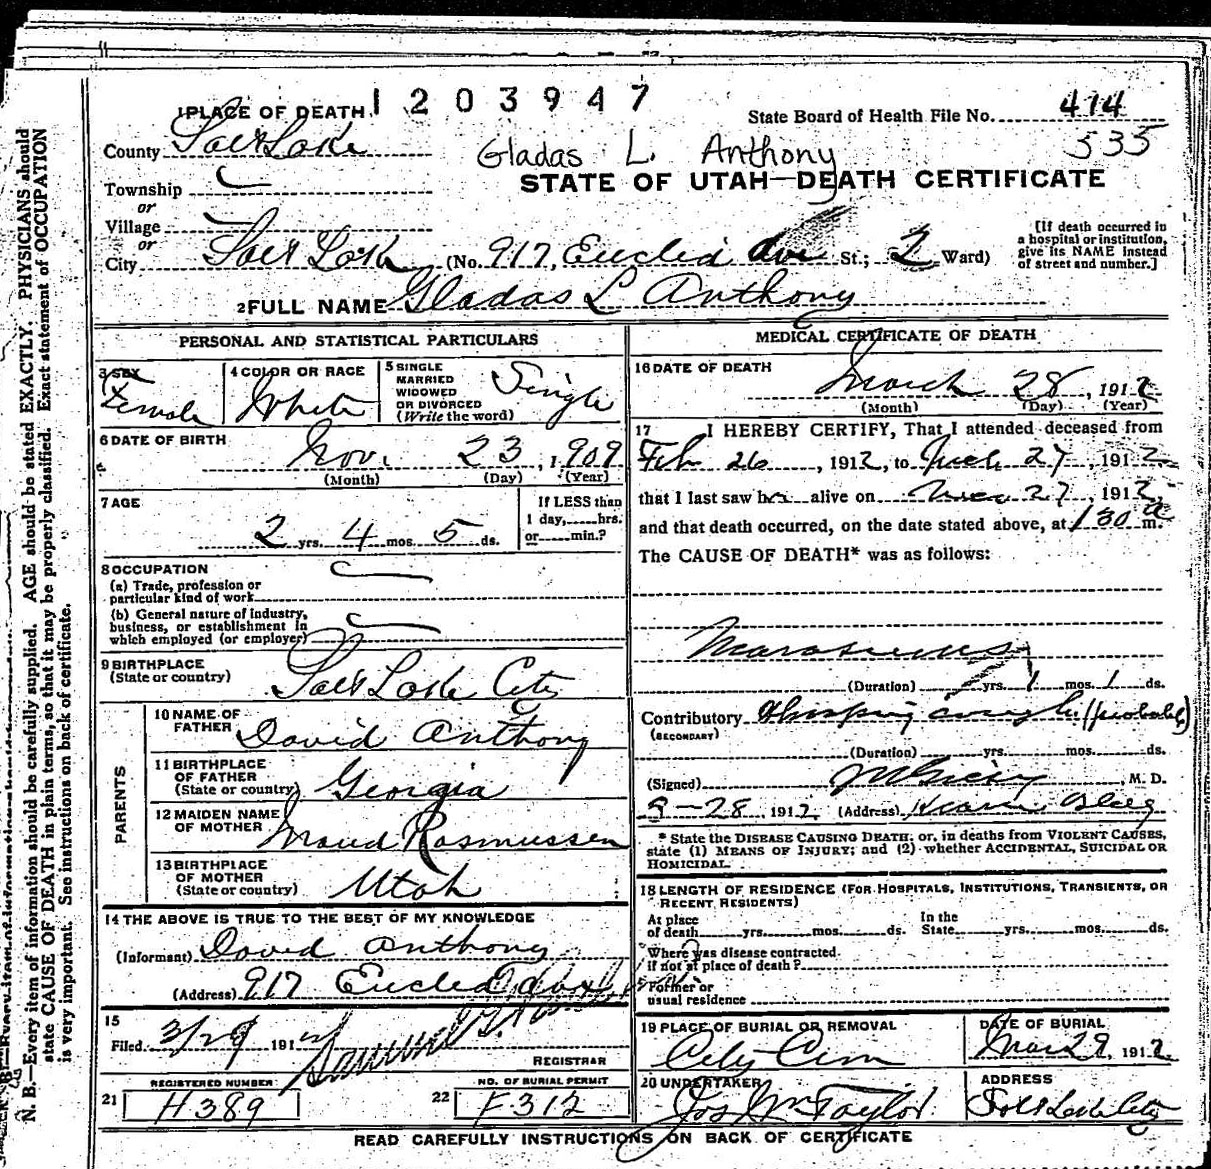 1 PLACE OF DEATH 1 2 0 3 9 4 7
State Board of Health File No. 414
535
County Salt Lake
Gladas L. Anthony
STATE OF UTAH—DEATH CERTIFICATE
Township
or
Village
or
City Salt Lake (No. 917, Euclid Ave St.; 2 Ward)
[If death occurred in
a hospital or institution,
give its NAME instead
of street and number.]
2 FULL NAME Gladas L Anthony
PERSONAL AND STATISTICAL PARTICULARS
3 SEX
Female
4 COLOR OR RACE
White
5 SINGLE
MARRIED
WIDOWED
OR DIVORCED
(Write the word)
Single
6 DATE OF BIRTH
Nov. 23, 1909
(Month) (Day) (Year)
7 AGE
2 yrs. 4 mos. 5 ds.
If LESS than
1 day,......hrs.
or......min.?
8 OCCUPATION
(a) Trade, profession or
particular kind of work
(b) General nature of industry,
business, or establishment in
which employed (or employer)
9 BIRTHPLACE
(State or country)
Salt Lake City
PARENTS
10 NAME OF
FATHER
David Anthony
11 BIRTHPLACE
OF FATHER
(State or country)
Georgia
12 MAIDEN NAME
OF MOTHER
Maud Rasmussen
13 BIRTHPLACE
OF MOTHER
(State or country)
Utah
14 THE ABOVE IS TRUE TO THE BEST OF MY KNOWLEDGE
(Informant) David Anthony
(Address) 917 Euclid
15
Filed 3/29 191
REGISTRAR
REGISTERED NUMBER
21 H389
NO. OF BURIAL PERMIT
22 F312
MEDICAL CERTIFICATE OF DEATH
16 DATE OF DEATH
March 28, 1912
(Month) (Day) (Year)
17 I HEREBY CERTIFY, That I attended deceased from
Feb 26, 1912, to Mch 27, 1912
that I last saw her alive on Mch 27, 1912,
and that death occurred, on the date stated above, at 130 a m.
The CAUSE OF DEATH* was as follows:
Marasmus
(Duration) yrs. 1 mos. 1 ds.
Contributory Whooping cough (probably)
(SECONDARY)
(Duration) yrs. mos. ds.
(Signed) M. D.
3-28, 1912 (Address)
* State the DISEASE CAUSING DEATH, or, in deaths from VIOLENT CAUSES,
state (1) MEANS OF INJURY; and (2) whether ACCIDENTAL, SUICIDAL OR
HOMICIDAL.
18 LENGTH OF RESIDENCE (FOR HOSPITALS, INSTITUTIONS, TRANSIENTS, OR
RECENT RESIDENTS)
At place
of death......yrs......mos......ds.
In the
State......yrs......mos......ds.
Where was disease contracted
if not at place of death?
Former or
usual residence
19 PLACE OF BURIAL OR REMOVAL
City Cem
DATE OF BURIAL
Mar 29, 1912
20 UNDERTAKER
Jos Wm Taylor
ADDRESS
Salt Lake City
READ CAREFULLY INSTRUCTIONS ON BACK OF CERTIFICATE
N. B.—Every item of information should be carefully supplied. AGE should be stated EXACTLY. PHYSICIANS should
state CAUSE OF DEATH in plain terms, so that it may be properly classified. Exact statement of OCCUPATION
is very important. See instructions on back of certificate.